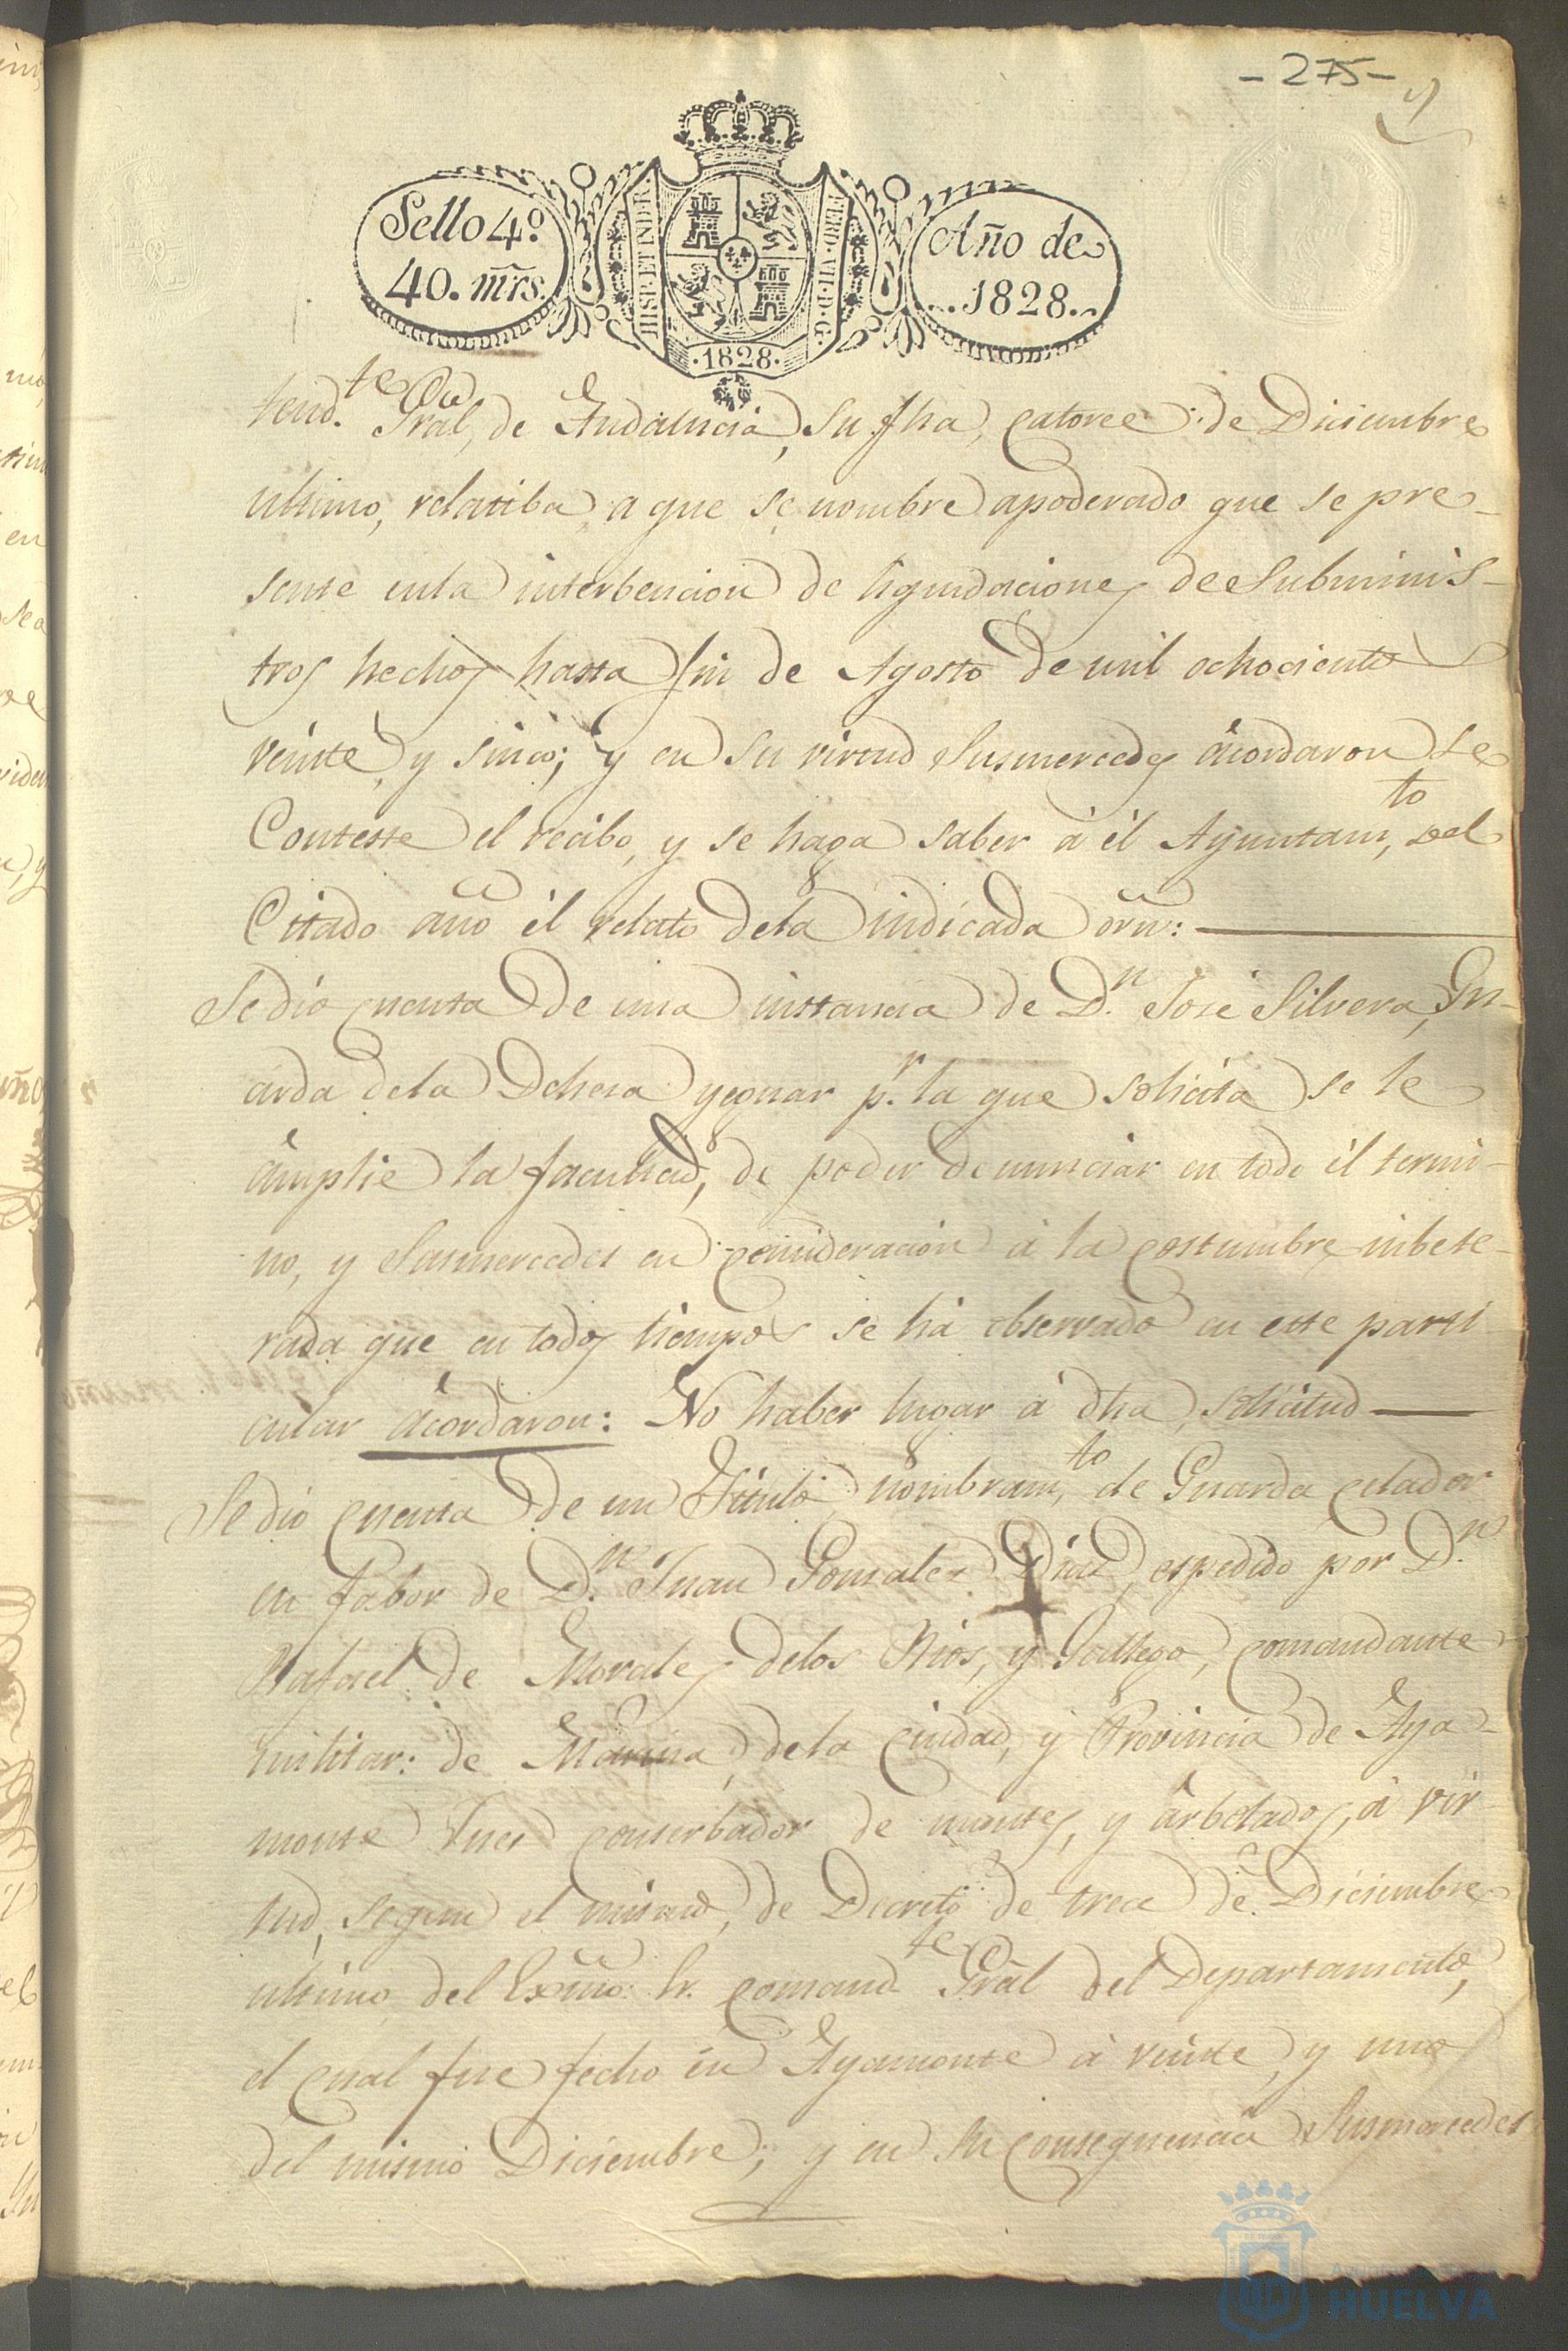 - 275 -
Sello 4º
40. mrs.
HISP. ET IND. R.
FERD. VII. D. G.
·1828·
Año de
1828.
tend.te Gral, de Andalucia, su fha, catorce de Diciembre
ultimo, relatiba a que se nombre apoderado que se pre-
sente enla interbencion de liquidaciones de Subminis-
tros hechos hasta fin de Agosto de mil ochocientos
veinte, y sinco; y en su virtud Susmercedes acordaron se
Conteste el recibo, y se haga saber à él Ayuntam,to del
Citado año él relato dela indicada orn:
Se dio cuenta de una instancia de D.n José Silvera, Gu-
arda dela Dehesa yeguar p.r la que solicita se le
âmplie la facultad, de poder denunciar en todo él termi-
no, y Susmercedes en consideracion à la costumbre inbete-
rada que en todos tiempos se há observado en este parti
cular acordaron: No haber lugar à dha, solicitud
Se dió cuenta de un Titulo nombram,to de Guarda celador
en fabor de D.n Juan Gonzalez Diaz, espedido por D.n
Rafael de Morales delos Rios, y Gallego, comandante
militar: de Marina, dela Ciudad, y Provincia de Aya-
monte Juez conserbador de montes, y ârbolados, à vir-
tud, segun el mismo, de Decreto de trece de Diciembre
ultimo del Exmo: Sr. comand.te Gral del Departamento,
el cual fue fecho en Ayamonte à veinte, y uno
del mismo Diciembre; y en su consequencia Susmercedes
HUELVA